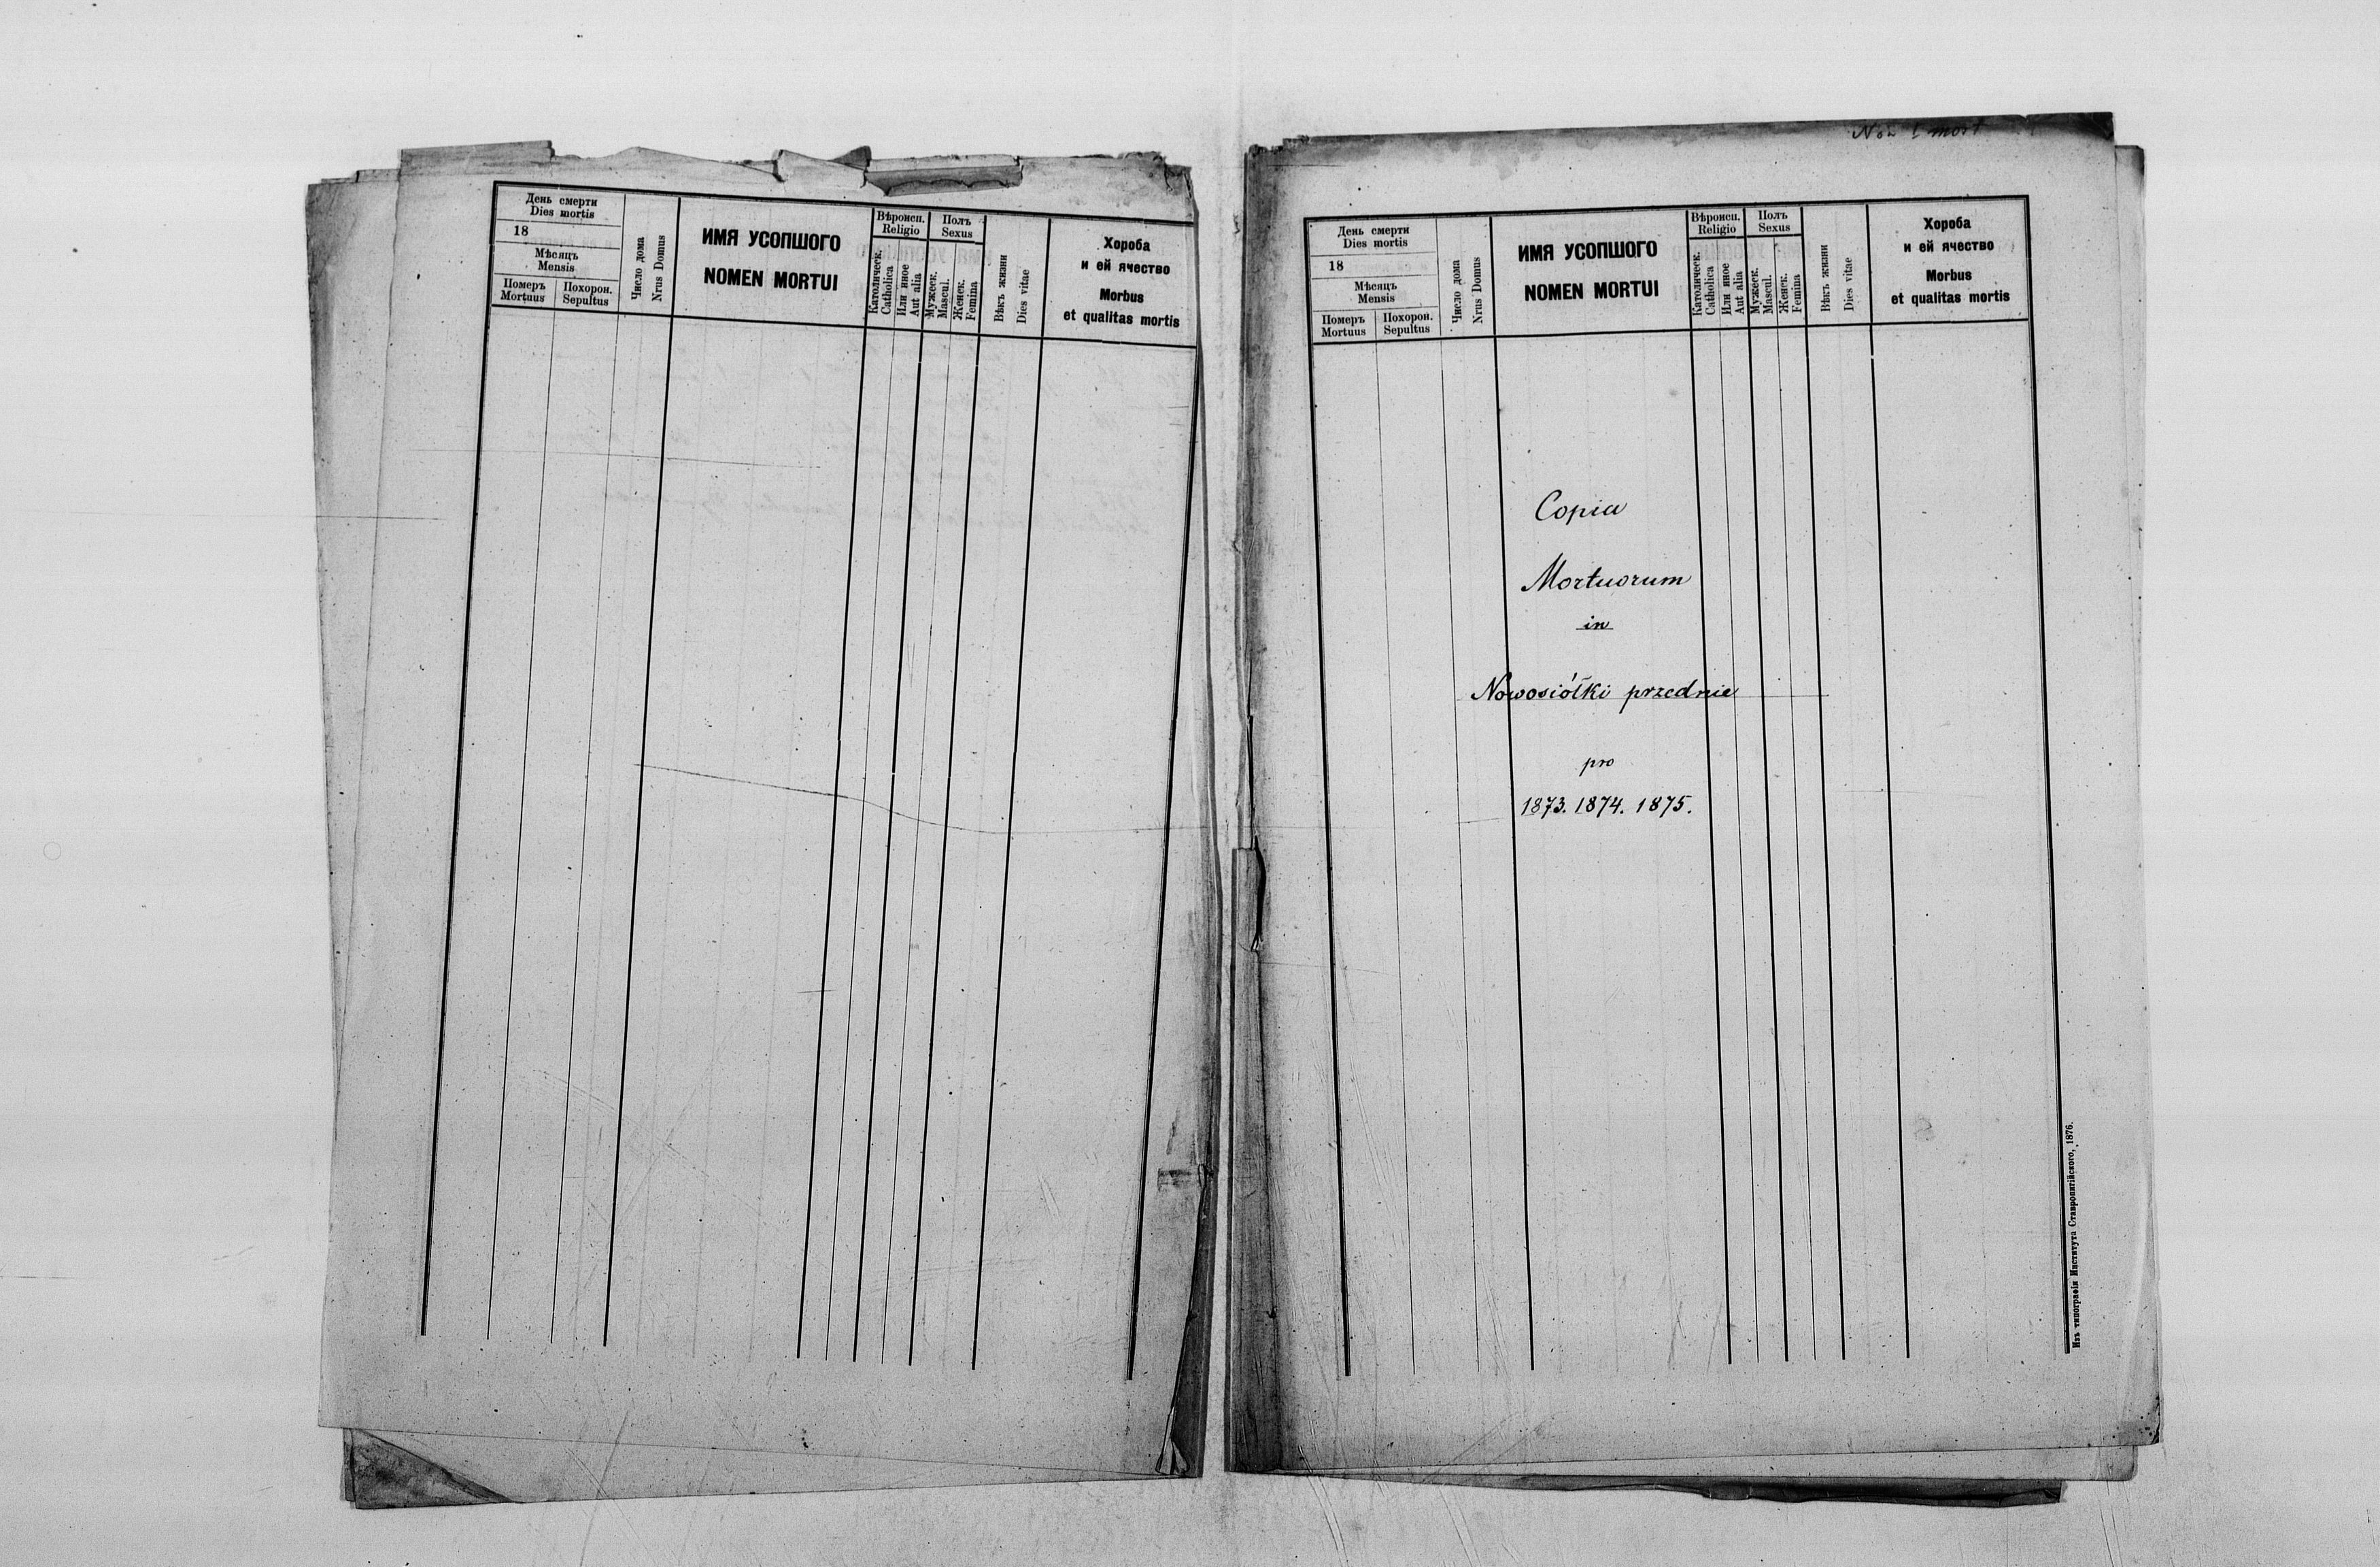 День смерти
Dies mortis
18
Мѣсяцъ
Mensis
Померъ
Mortuus
Похорон.
Sepultus
Число дома
Nrus Domus
ИМЯ УСОПШОГО
NOMEN MORTUI
Вѣроисп.
Religio
Католическ.
Catholica
Или иное
Aut alia
Полъ
Sexus
Мужеск.
Mascul.
Женск.
Femina
Вѣкъ жизни
Dies vitae
Хороба
и ей ячество
Morbus
et qualitas mortis
День смерти
Dies mortis
18
Мѣсяцъ
Mensis
Померъ
Mortuus
Похорон.
Sepultus
Число дома
Nrus Domus
ИМЯ УСОПШОГО
NOMEN MORTUI
Вѣроисп.
Religio
Католическ.
Catholica
Или иное
Aut alia
Полъ
Sexus
Мужеск.
Mascul.
Женск.
Femina
Вѣкъ жизни
Dies vitae
Хороба
и ей ячество
Morbus
et qualitas mortis
Copia
Mortuorum
in
Nowosiółki przednie
pro
1873. 1874. 1875.
Изъ типографіи Института Ставропигійского, 1876.